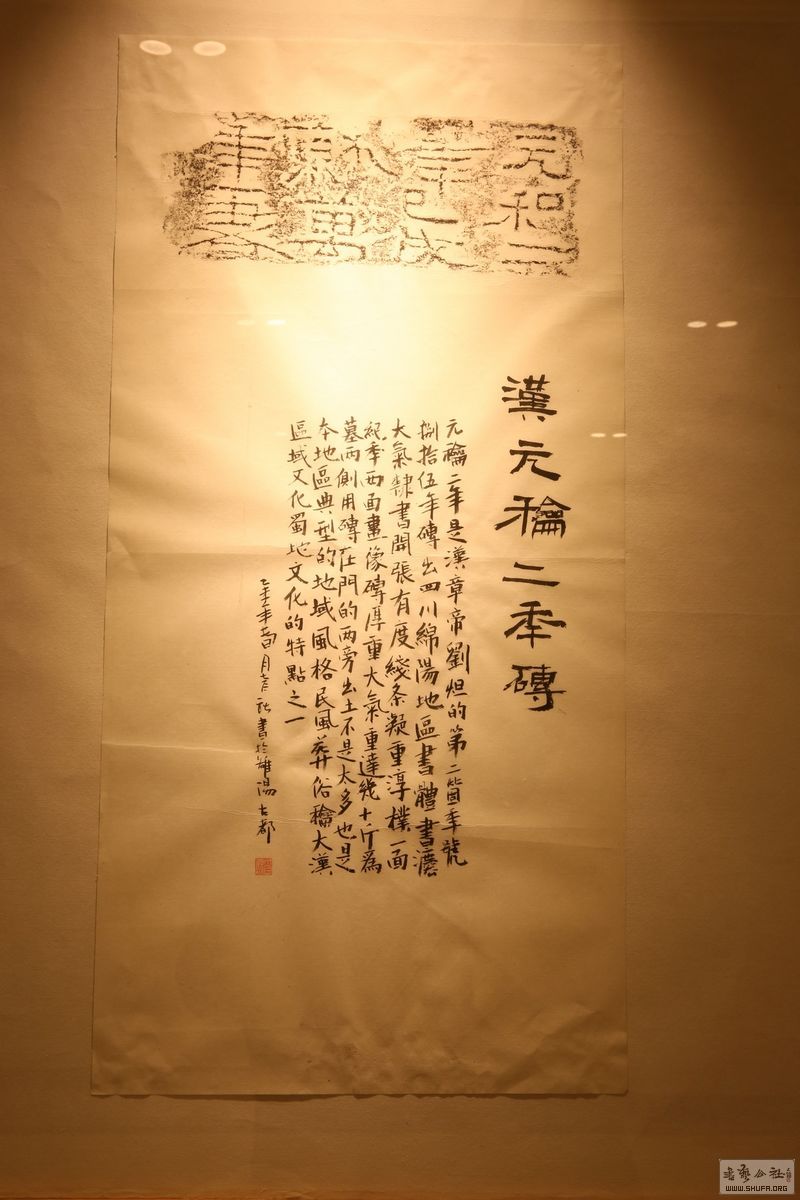 元和二
漢元龢二秊磚
元龢二年是漢章帝劉炟的第二箇秊號
捌拾伍年磚出四川綿陽地區書體書灋
大氣隸書開張有度綫条凝重淳樸一面
紀秊两面畫像磚厚重大氣重達幾十斤為
墓两側用磚在門的两旁出土不是太多也是
本地區典型的地域風格民風葬俗龢大漢
區域文化蜀地文化的特點之一
年菊月書於雒陽古都
書藝公社
WWW.SHUFA.ORG